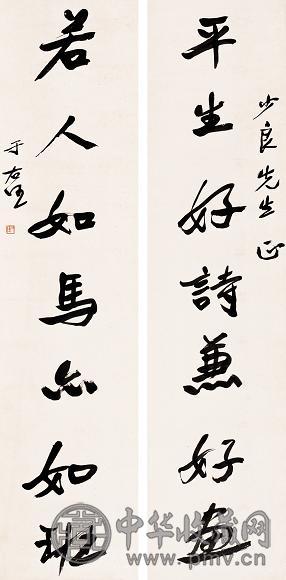 少良先生正
平生好詩兼好畫
若人如馬亦如班
于右任
中华收藏网
www.pmv.cn